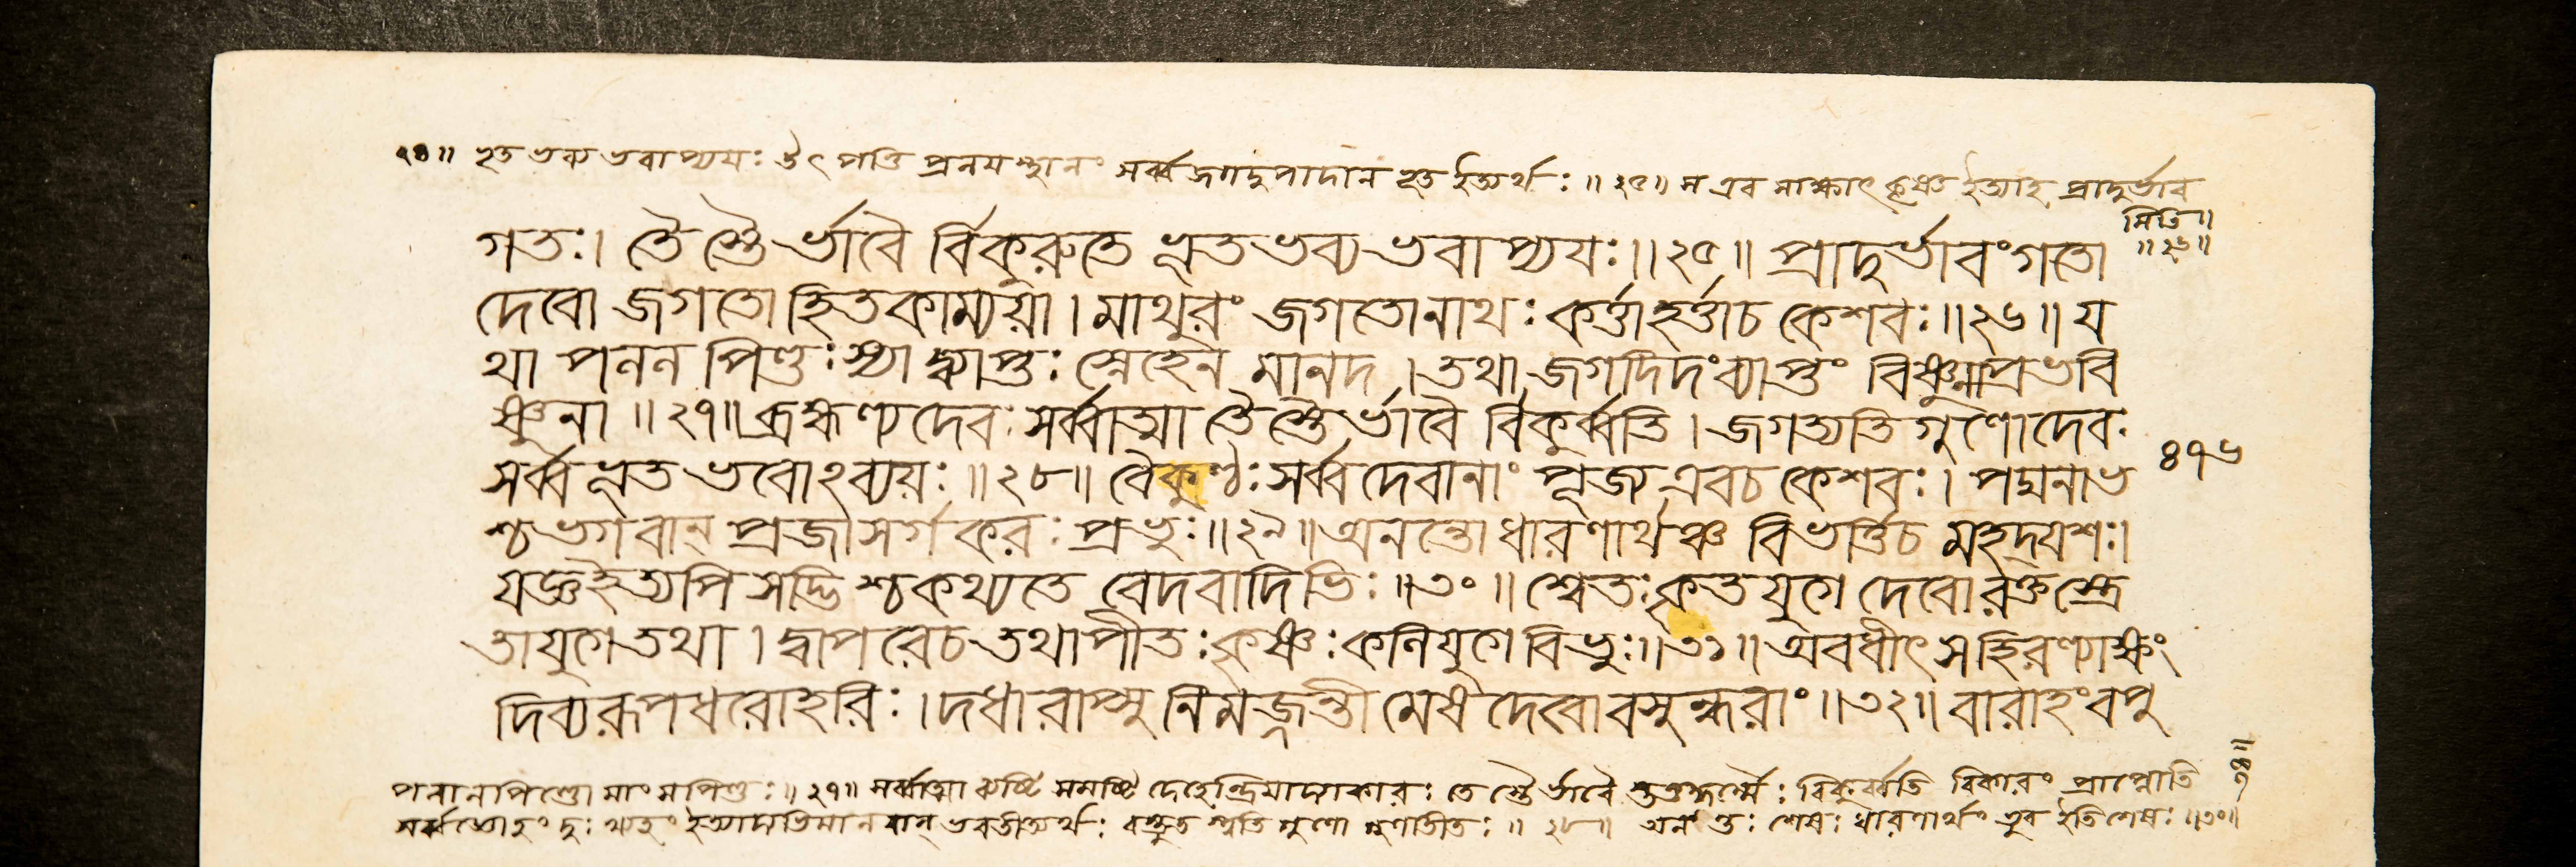 ২৪॥ ভূত ভব্য ভবাপ্যয়ঃ উৎপত্তি প্রলয়স্থানং সর্ব্বজগদুপাদানভূত ইত্যর্থঃ ॥ ২৫॥ স এব সাক্ষাৎ কৃষ্ণ ইত্যাহ প্রাদুর্ভাব
মিতি॥
॥২৬॥
গতঃ। তৈ স্তৈ র্ভাবৈ র্বিকুরুতে ভূতভব্যভবাপ্যয়ঃ॥২৫॥ প্রাদুর্ভাবংগতো
দেবো জগতোহিতকাম্যয়া। মাথুরং জগতোনাথঃ কর্ত্তাহর্ত্তাচ কেশবঃ॥২৬॥ য
থা পলল পিণ্ডঃস্যাদ্ব্যাপ্তঃ স্নেহেন মানদ। তথা জগদিদংব্যাপ্তং বিষ্ণুনাপ্রভবি
ষ্ণুনা ॥২৭॥ ব্রহ্মণ্যদেবঃ সর্ব্বাত্মা তৈ স্তৈ র্ভাবৈ র্বিকুর্ব্বতি। জগত্যতিগুণোদেবঃ
সর্ব্বভূতভবোঽব্যয়ঃ ॥২৮॥ বৈকুণ্ঠঃ সর্ব্বদেবানাং পূজ্য এবচ কেশবঃ। পদ্মনাভ
৪৭৬
শ্চভগবান্ প্রজাসর্গকরঃ প্রভুঃ॥২৯॥ অনন্তোধারণার্থঞ্চ বিভর্ত্তিচ মহদ্যশঃ।
যজ্ঞইত্যপি সদ্ভিশ্চকথ্যতে বেদবাদিভিঃ॥৩০॥ শ্বেতঃকৃতযুগে দেবোরক্তস্ত্রে
তাযুগেতথা। দ্বাপরেচতথাপীতঃকৃষ্ণঃকলিযুগেবিভুঃ॥৩১॥ অবধীৎ সহিরণ্যাক্ষং
দিব্যরূপধরোহরিঃ। দধারাপ্সু নিমজ্জন্তীমেষ দেবোবসুন্ধরাং॥৩২॥ বারাহংবপু
পললপিণ্ডো মাংসপিণ্ডঃ॥২৭॥ সর্ব্বাত্মা ব্যষ্টি সমষ্টি দেহেন্দ্রিয়াদ্যাকারঃ তৈ স্তৈ র্ভাবৈ বিকুর্ব্বতি বিকারং প্রাপ্নোতি
ইত্যাদ্যভিমানবান্ ভবতীত্যর্থঃ বস্তুত স্ত্বতিগুণো গুণাতীতঃ ॥ ২৮॥ অনন্তঃ শেষঃ ধারণার্থং ভুব ইতিশেষঃ ॥৩০॥